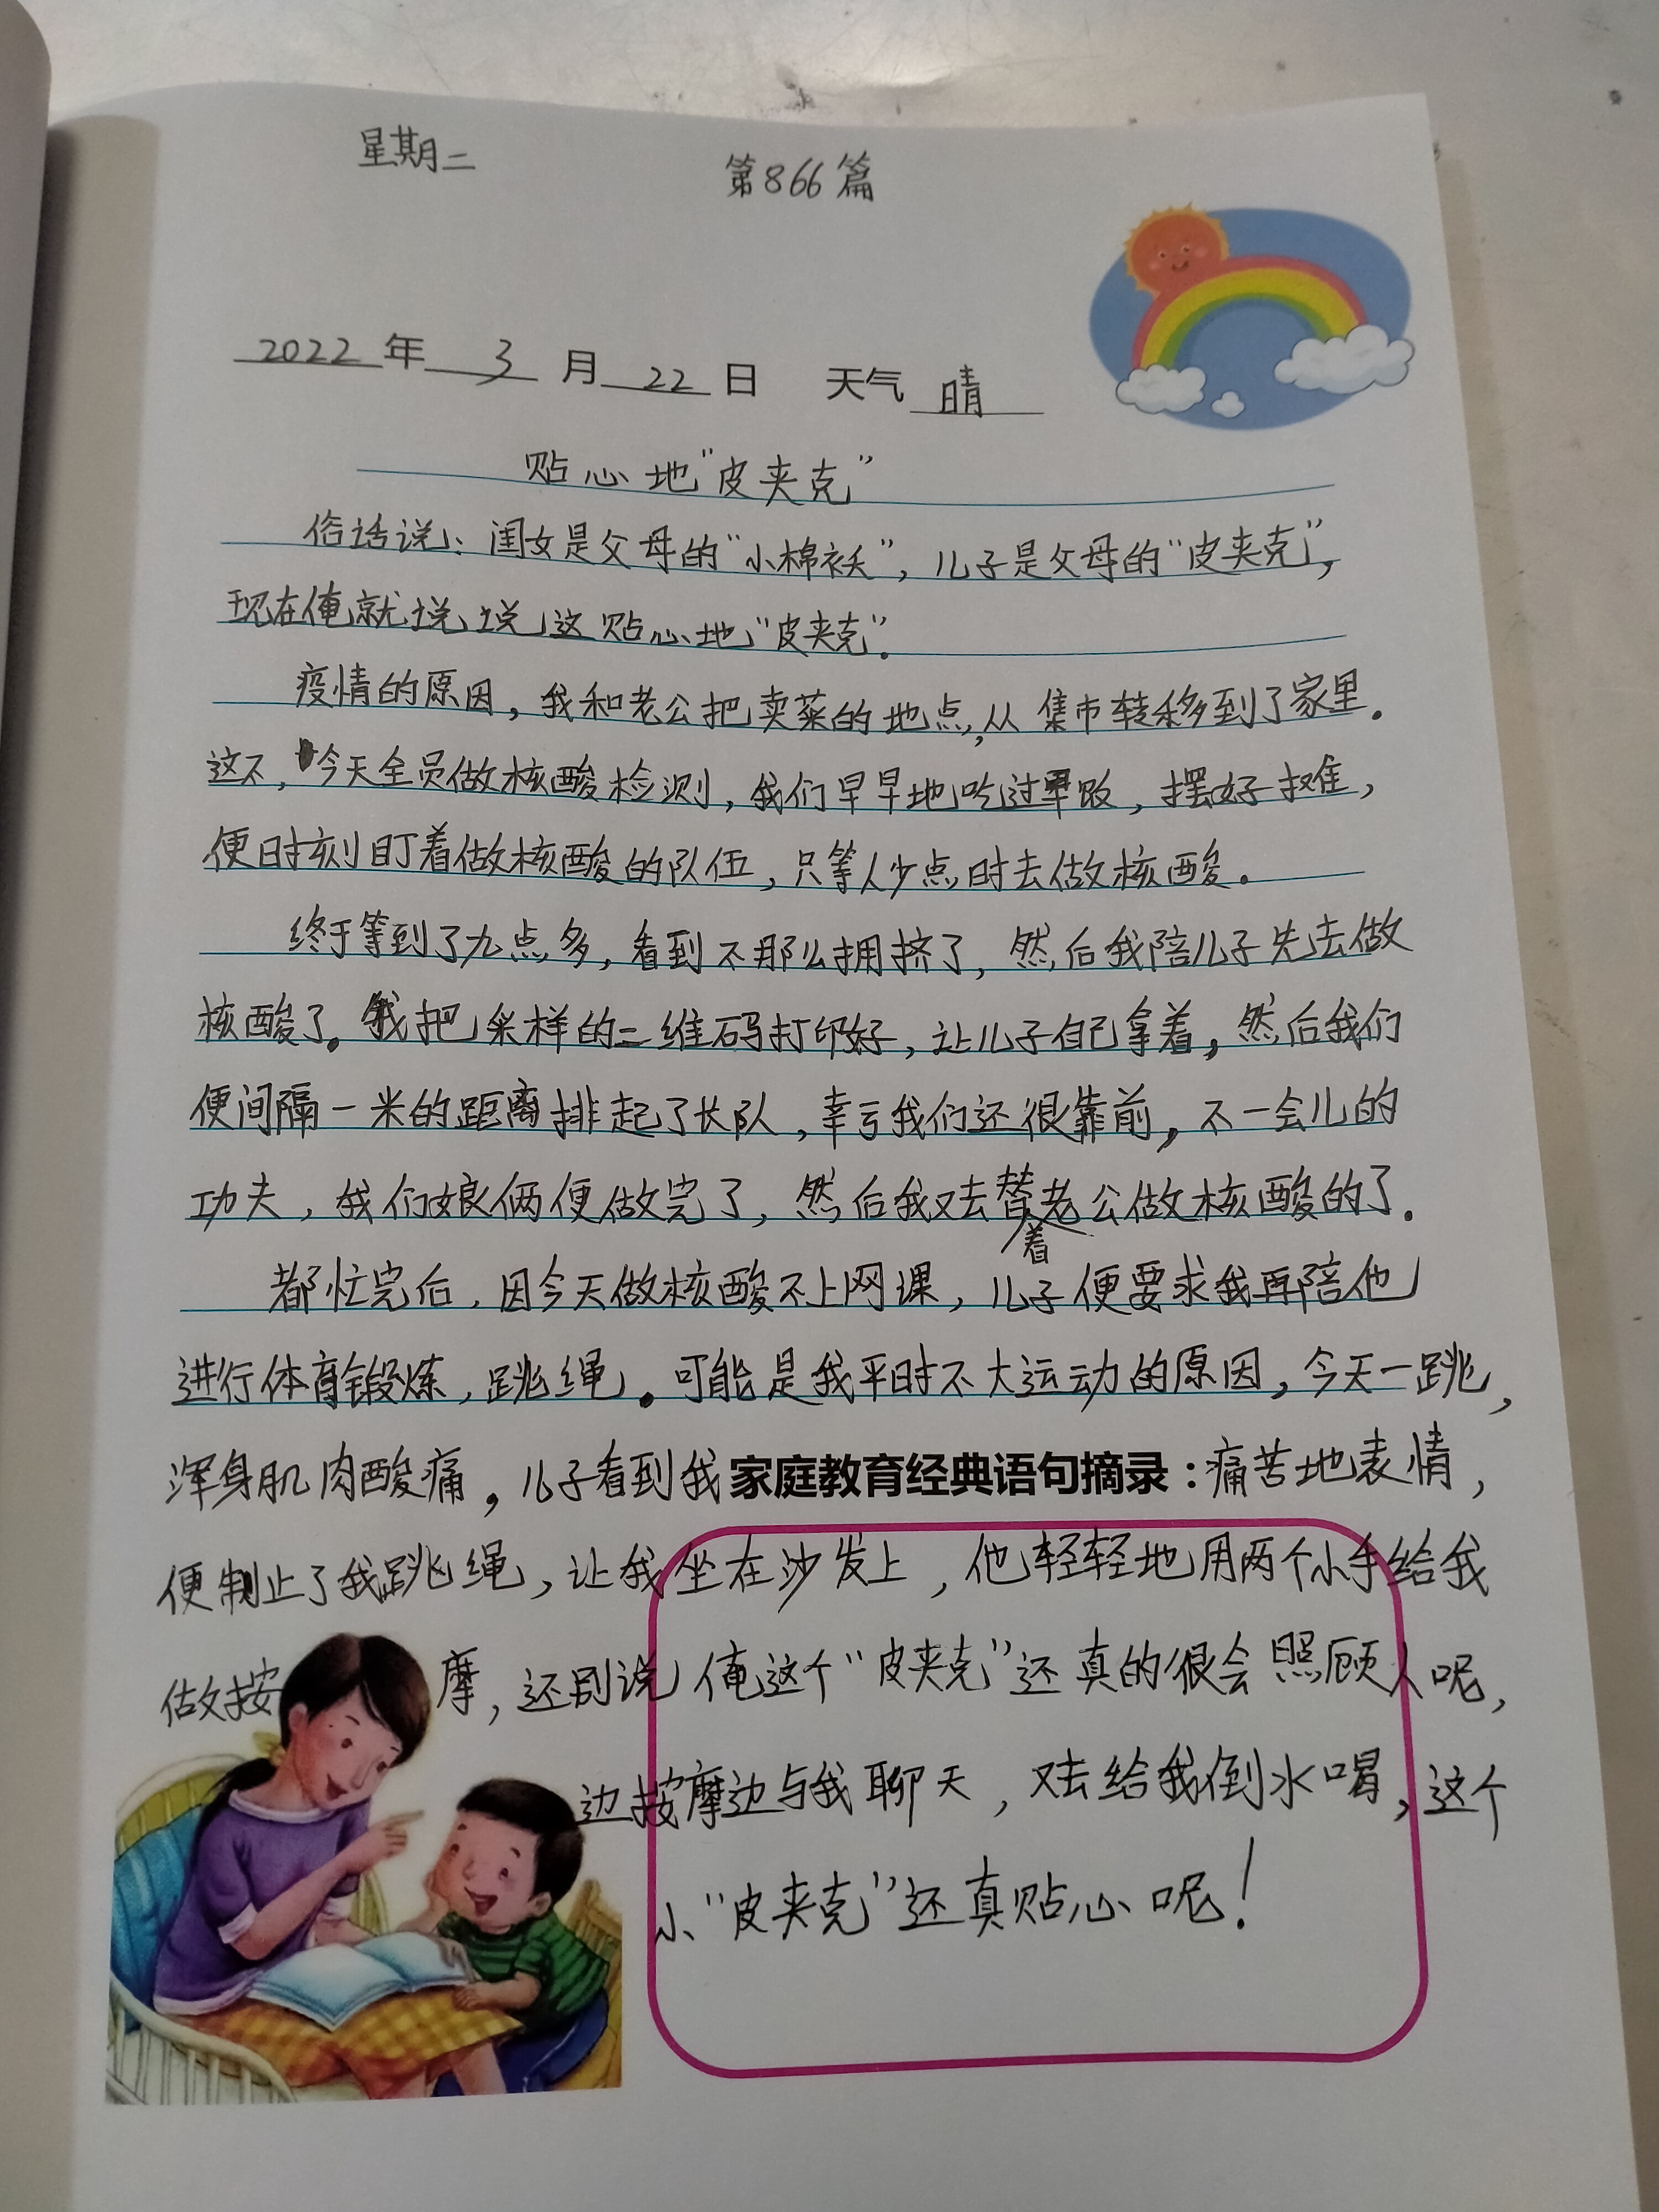 星期二
第866篇
2022年3月22日 天气晴
贴心地“皮夹克”
俗话说：闺女是父母的“小棉袄”，儿子是父母的“皮夹克”，
现在俺就说说这贴心地“皮夹克”.
疫情的原因，我和老公把卖菜的地点，从集市转移到了家里.
这不，今天全员做核酸检测，我们早早地吃过早饭，摆好摊，
便时刻盯着做核酸的队伍，只等人少点时去做核酸.
终于等到了九点多，看到不那么拥挤了，然后我陪儿子先去做
核酸了.我把采样的二维码打印好，让儿子自己拿着，然后我们
便间隔一米的距离排起了长队，幸亏我们还很靠前，不一会儿的
功夫，我们娘俩便做完了，然后我又去替着老公做核酸的了.
都忙完后，因今天做核酸不上网课，儿子便要求我再陪他
进行体育锻炼，跳绳.可能是我平时不大运动的原因，今天一跳，
浑身肌肉酸痛，儿子看到我家庭教育经典语句摘录：痛苦地表情，
便制止了我跳绳，让我坐在沙发上，他轻轻地用两个小手给我
做按摩，还别说俺这个“皮夹克”还真的很会照顾人呢，
边按摩边与我聊天，又去给我倒水喝，这个
小“皮夹克”还真贴心呢！